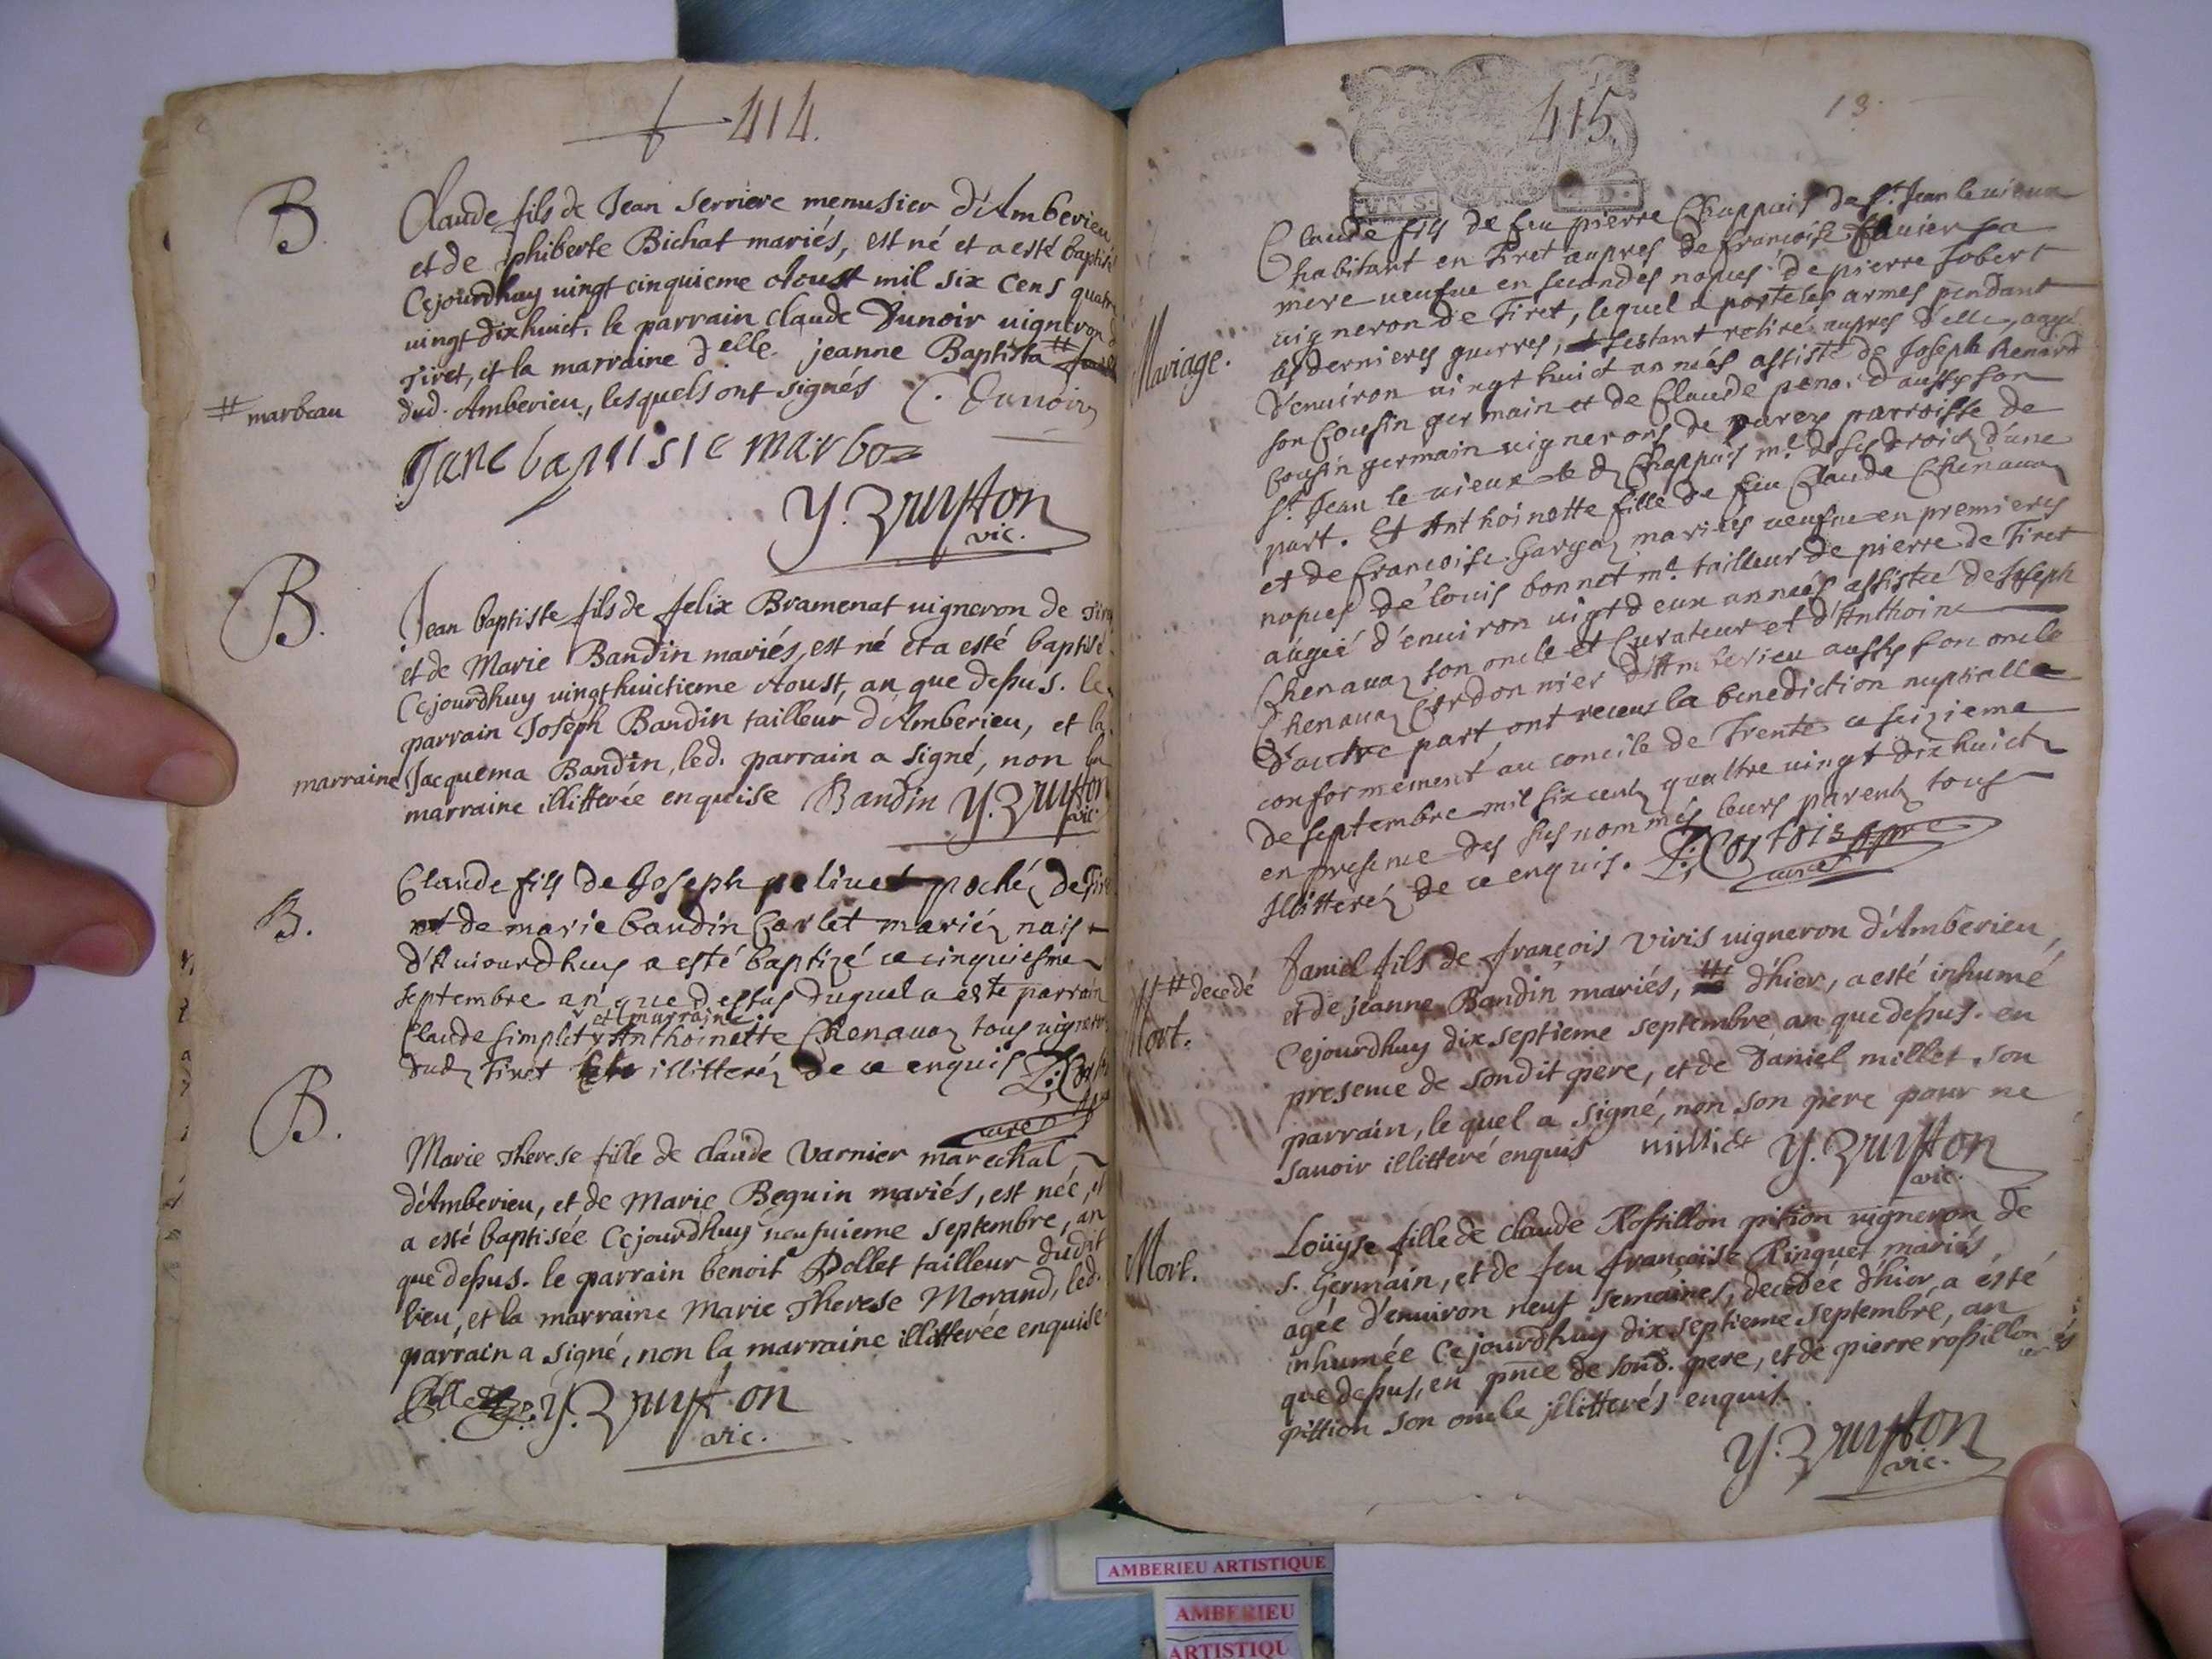 414.
B
Claude fils de Jean Serriere menusier d'Amberieu
et de phiberte Bichat mariés, est né et a esté baptisé
Cejourdhuy vingt cinquieme Aoust mil six cens quatre
vingt dixhuict. le parrain Claude Dunoir vigneron d
Tiret, et la marraine delle. jeanne Baptista #
# marbeau
dud. Amberieu, lesquels ont signés C. Dunoir
Jane baptiste marbo
Y. Bruyston
vic.
B.
Jean baptiste fils de felix Bramenat vigneron de Tir
et de Marie Bandin mariés, est né et a esté baptisé
Cejourdhuy vingthuictieme Aoust, an que dessus. le
parrain Joseph Bandin tailleur d'Amberieu, et la
marraine Jacquema Bandin, led. parrain a signé, non la
marraine illitterée enquise Bandin Y. Bruyston
vic.
B.
Claude fils de Joseph poché de Tire
et de marie baudin Carlet mariéz nais
d'Aujourdhuy a esté baptizé ce cinquiesme
septembre an que dessus duquel a esté parrain
Claude simplet et marraine Anthoinette Chenavaz tous vigneron
dudz Tiret illitteréz de ce enquis
curé
B.
Marie Therese fille de claude Varnier marechal
d'Amberieu, et de Marie Beguin mariés, est née, et
a esté baptisée Cejourdhuy neufuieme septembre, an
que dessus. le parrain benoit Dollet tailleur dudit
lieu, et la marraine Marie Therese Morand, led.
parrain a signé, non la marraine illitterée enquise
Y. Bruyston
vic.
415
13.
Mariage.
Claude fils de feu pierre Chappuis de St. Jean le vieux
habitant en Tiret aupres de francoise sa
mere veufue en secondes nopces de pierre Jobert
vigneron de Tiret, lequel a porté les armes pendant
les dernieres guerres, sestant retiré aupres delle, aagé
d'enuiron vingt huict années assisté de Joseph Renard
son Cousin germain et de Claude aussy son
Cousin germain vignerons de parroisse de
St. Jean le vieux le dz Chappuis me. de ses droictz d'une
part. Et Anthoinette fille de feu Claude Chenavaz
et de francoise mariés veufue en premieres
nopces de louis bonnet me. tailleur de pierre de Tiret
âagée d'enuiron vigt deux années assistée de Joseph
Chenavaz son oncle et Curateur et d'Anthoine
Chenavaz Cordonnier d'Amberieu aussy son oncle
d'autre part, ont receus la benediction nuptialle
conformement au concile de Trente ce seizieme
de septembre mil six centz quattre vingt dix huict
en presence des sus nommés leurs parentz tous
Illitteréz de ce enquis.
curé
# decedé
Mort.
Daniel fils de françois Vivis vigneron d'Amberieu,
et de jeanne Bandin mariés, # d'hier, a esté inhumé
Cejourdhuy dix septieme septembre an que dessus. en
presence de sondit pere, et de Daniel millet son
parrain, lequel a signé, non son pere pour ne
savoir illitteré enquis millet Y. Bruyston
vic.
Mort.
Loüyse fille de claude Rossillon pition vigneron de
S. Germain, et de feu françoise Ringuet mariés,
agée d'enuiron neuf semaines, decedée d'hier, a esté
inhumée Cejourdhuy dix septieme septembre, an
que dessus, en pnce de sond. pere, et de pierre rossillon
pittion son oncle jllitterés enquis.
Y. Bruyston
vic.
AMBERIEU ARTISTIQUE
AMBERIEU
ARTISTIQU